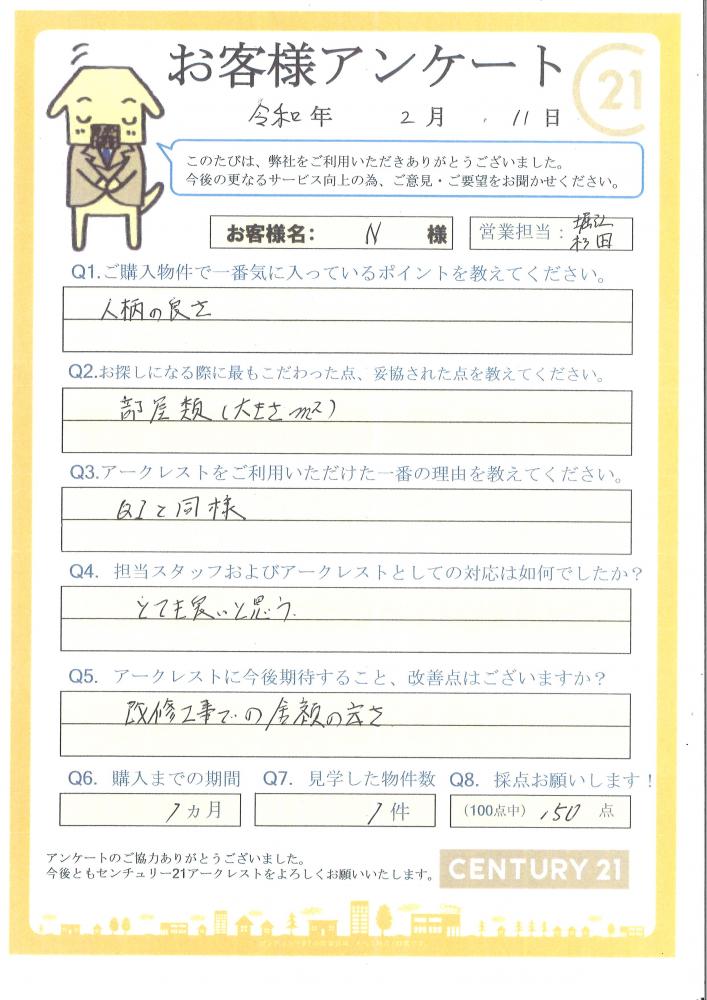 お客様アンケート
21
令和 年 2月 11日
このたびは、弊社をご利用いただきありがとうございました。
今後の更なるサービス向上の為、ご意見・ご要望をお聞かせください。
お客様名: N 様
営業担当: 堀江
杉田
Q1.ご購入物件で一番気に入っているポイントを教えてください。
人柄の良さ
Q2.お探しになる際に最もこだわった点、妥協された点を教えてください。
部屋類(大きさm²)
Q3.アークレストをご利用いただけた一番の理由を教えてください。
Q1と同様
Q4. 担当スタッフおよびアークレストとしての対応は如何でしたか?
とても良いと思う.
Q5. アークレストに今後期待すること、改善点はございますか?
改修工事での金額の安さ
Q6. 購入までの期間 Q7. 見学した物件数 Q8. 採点お願いします!
1ヵ月 1件 (100点中) 150点
アンケートのご協力ありがとうございました。
今後ともセンチュリー21アークレストをよろしくお願いいたします。
CENTURY 21